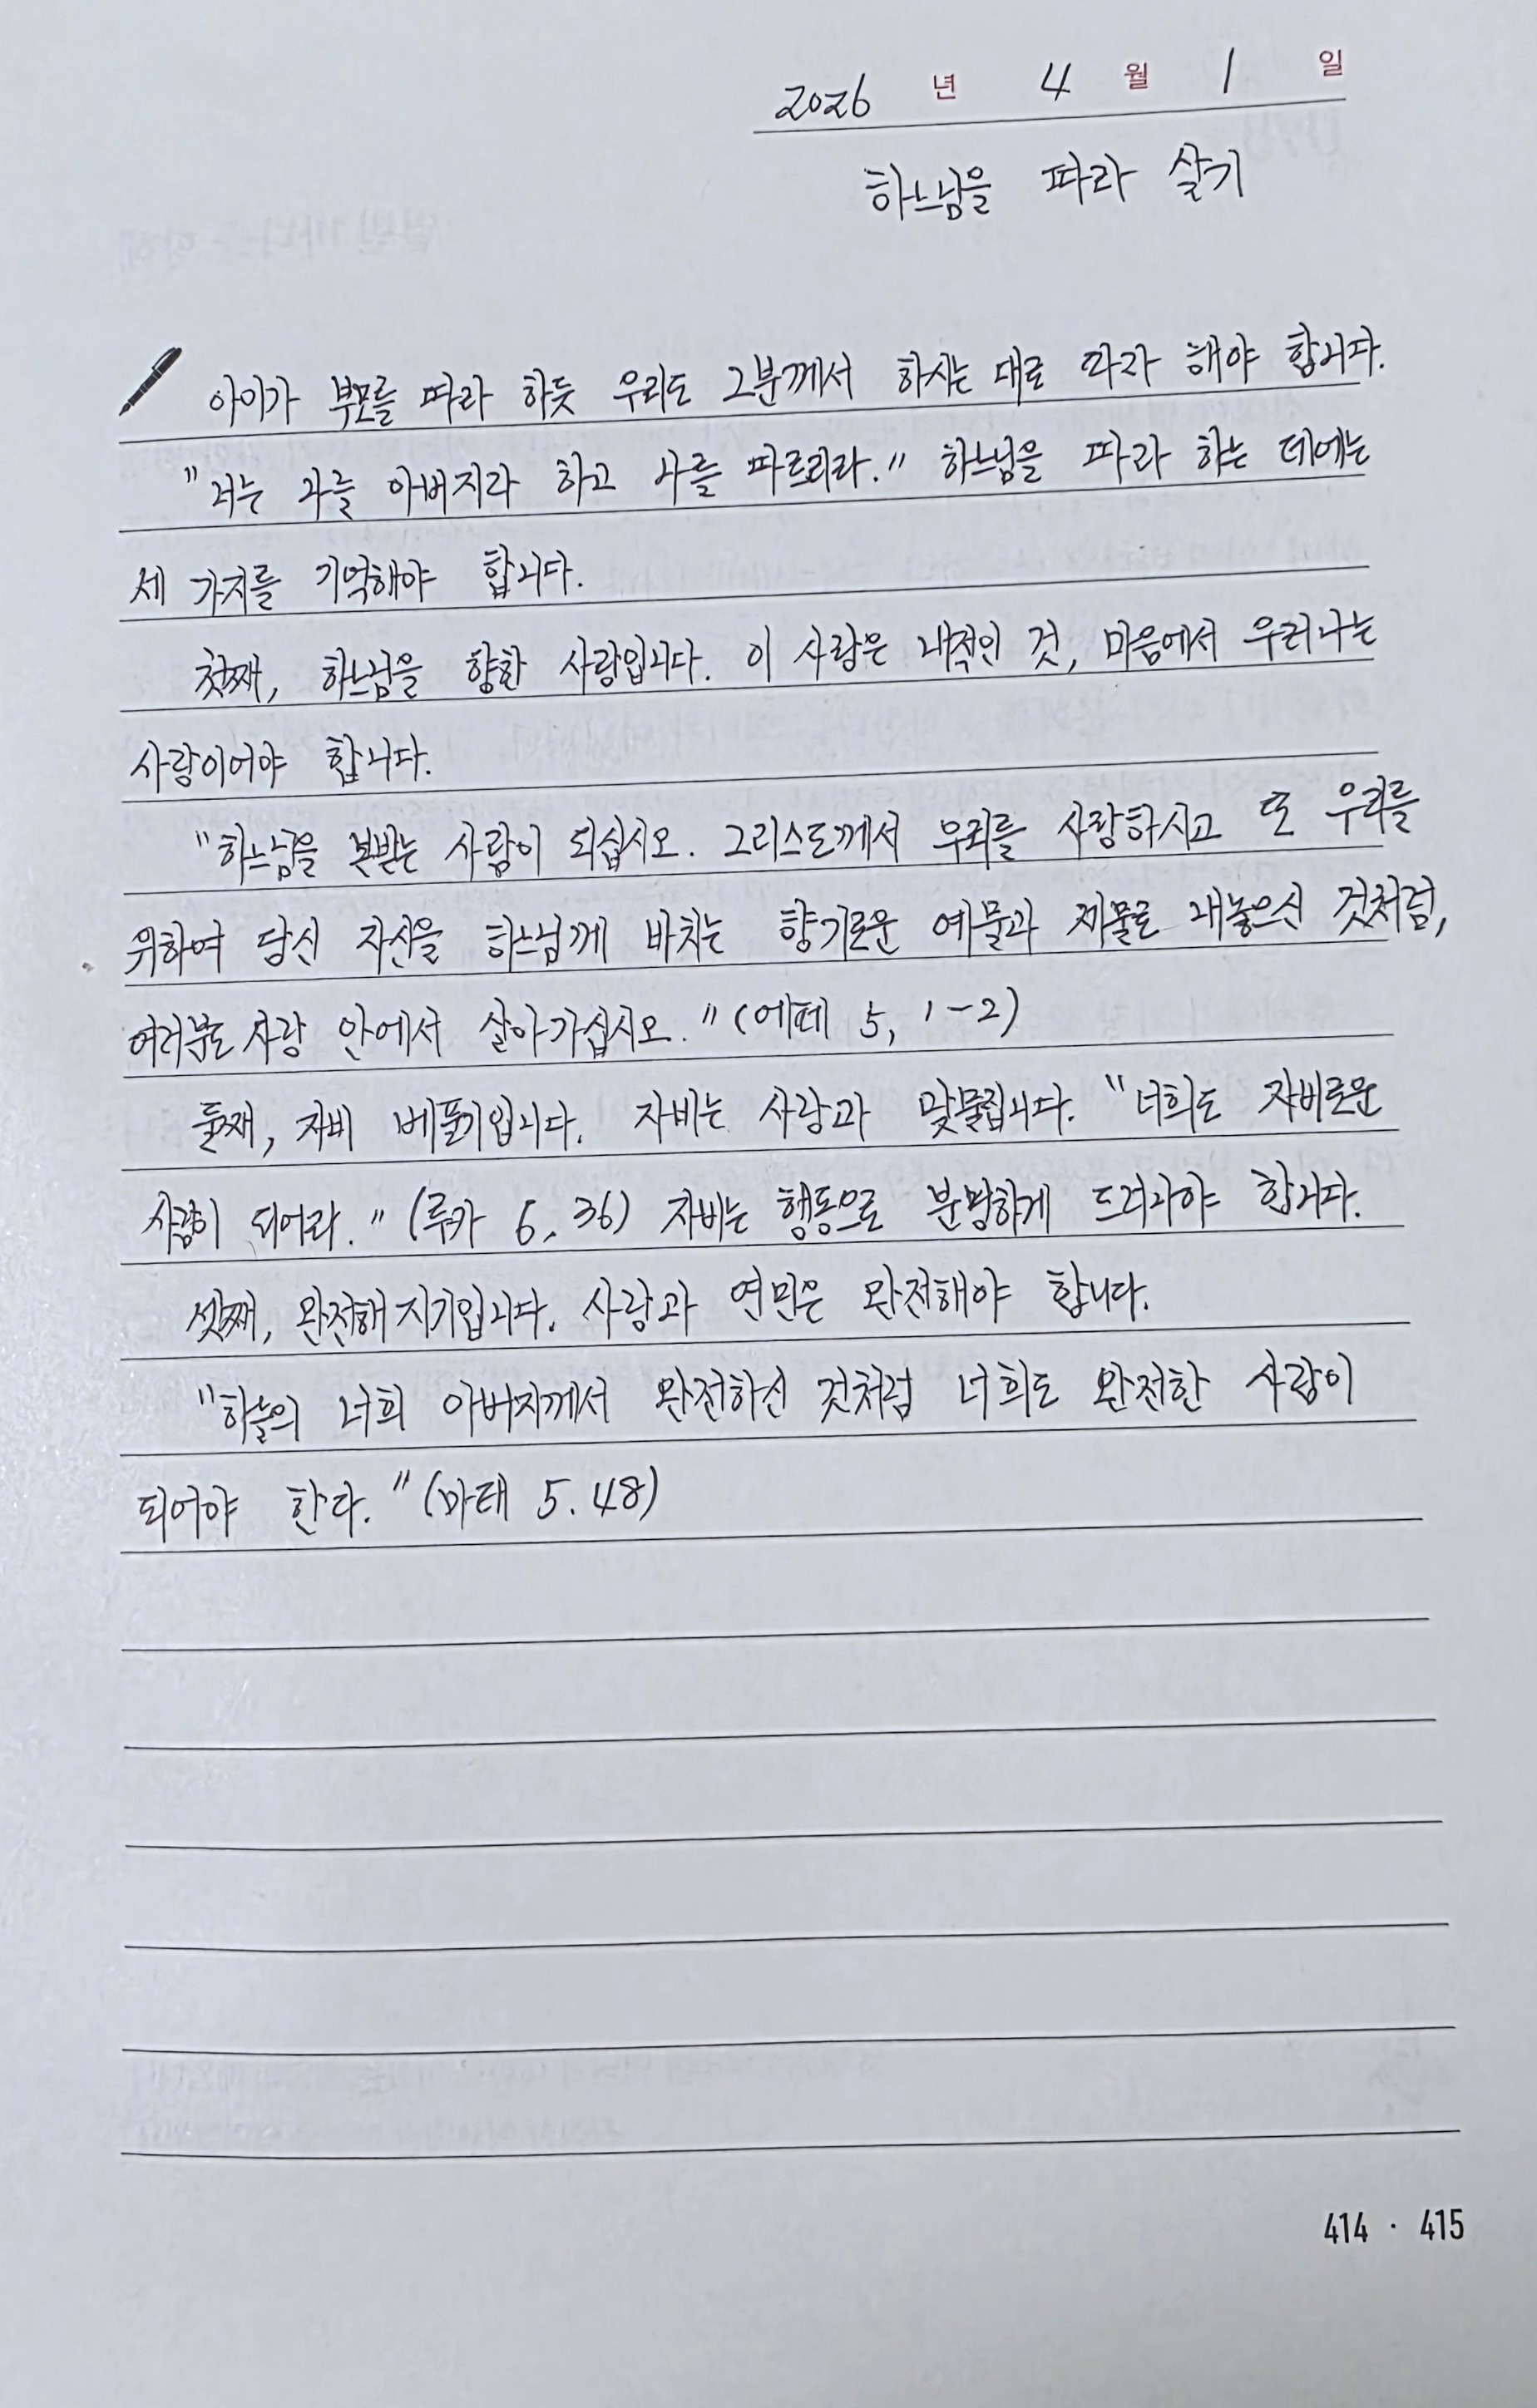 2026 년 4 월 1 일
하느님을 따라 살기
아이가 부모를 따라 하듯 우리도 그분께서 하시는 대로 따라 해야 합니다.
"너는 나를 아버지라 하고 나를 따르리라." 하느님을 따라 하는 데에는
세 가지를 기억해야 합니다.
첫째, 하느님을 향한 사랑입니다. 이 사랑은 내적인 것, 마음에서 우러나는
사랑이어야 합니다.
"하느님을 본받는 사람이 되십시오. 그리스도께서 우리를 사랑하시고 또 우리를
위하여 당신 자신을 하느님께 바치는 향기로운 예물과 제물로 내놓으신 것처럼,
여러분도 사랑 안에서 살아가십시오." (에페 5, 1-2)
둘째, 자비 베풀기입니다. 자비는 사랑과 맞물립니다. "너희도 자비로운
사람이 되어라." (루카 6, 36) 자비는 행동으로 분명하게 드러나야 합니다.
셋째, 완전해지기입니다. 사랑과 연민은 완전해야 합니다.
"하늘의 너희 아버지께서 완전하신 것처럼 너희도 완전한 사람이
되어야 한다." (마태 5. 48)
414 · 415